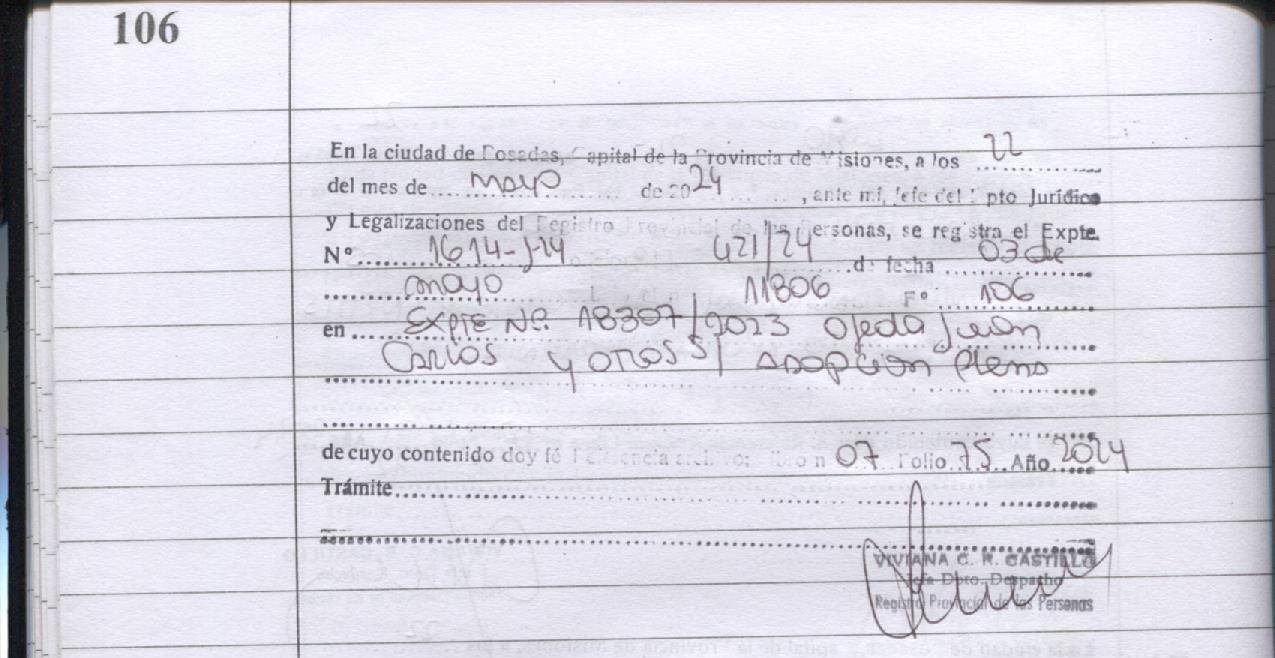 106
En la ciudad de Posadas, Capital de la Provincia de Misiones, a los 22
del mes de mayo de 2024, ante mí, Jefe del Dpto Jurídico
y Legalizaciones del Registro Provincial de las Personas, se registra el Expte.
Nº 1614-J-24 421/24 de fecha 03 de
mayo 11806 Fº 106
en Expte Nº. 18307/2023 Ojeda Juan
Carlos y otros s/ Adopción Plena
de cuyo contenido doy fé Referencia archivo: libro n 07 Folio 75 Año 2024
Trámite
VIVIANA C. R. CASTILLO
Jefa Dpto. Despacho
Registro Provincial de las Personas